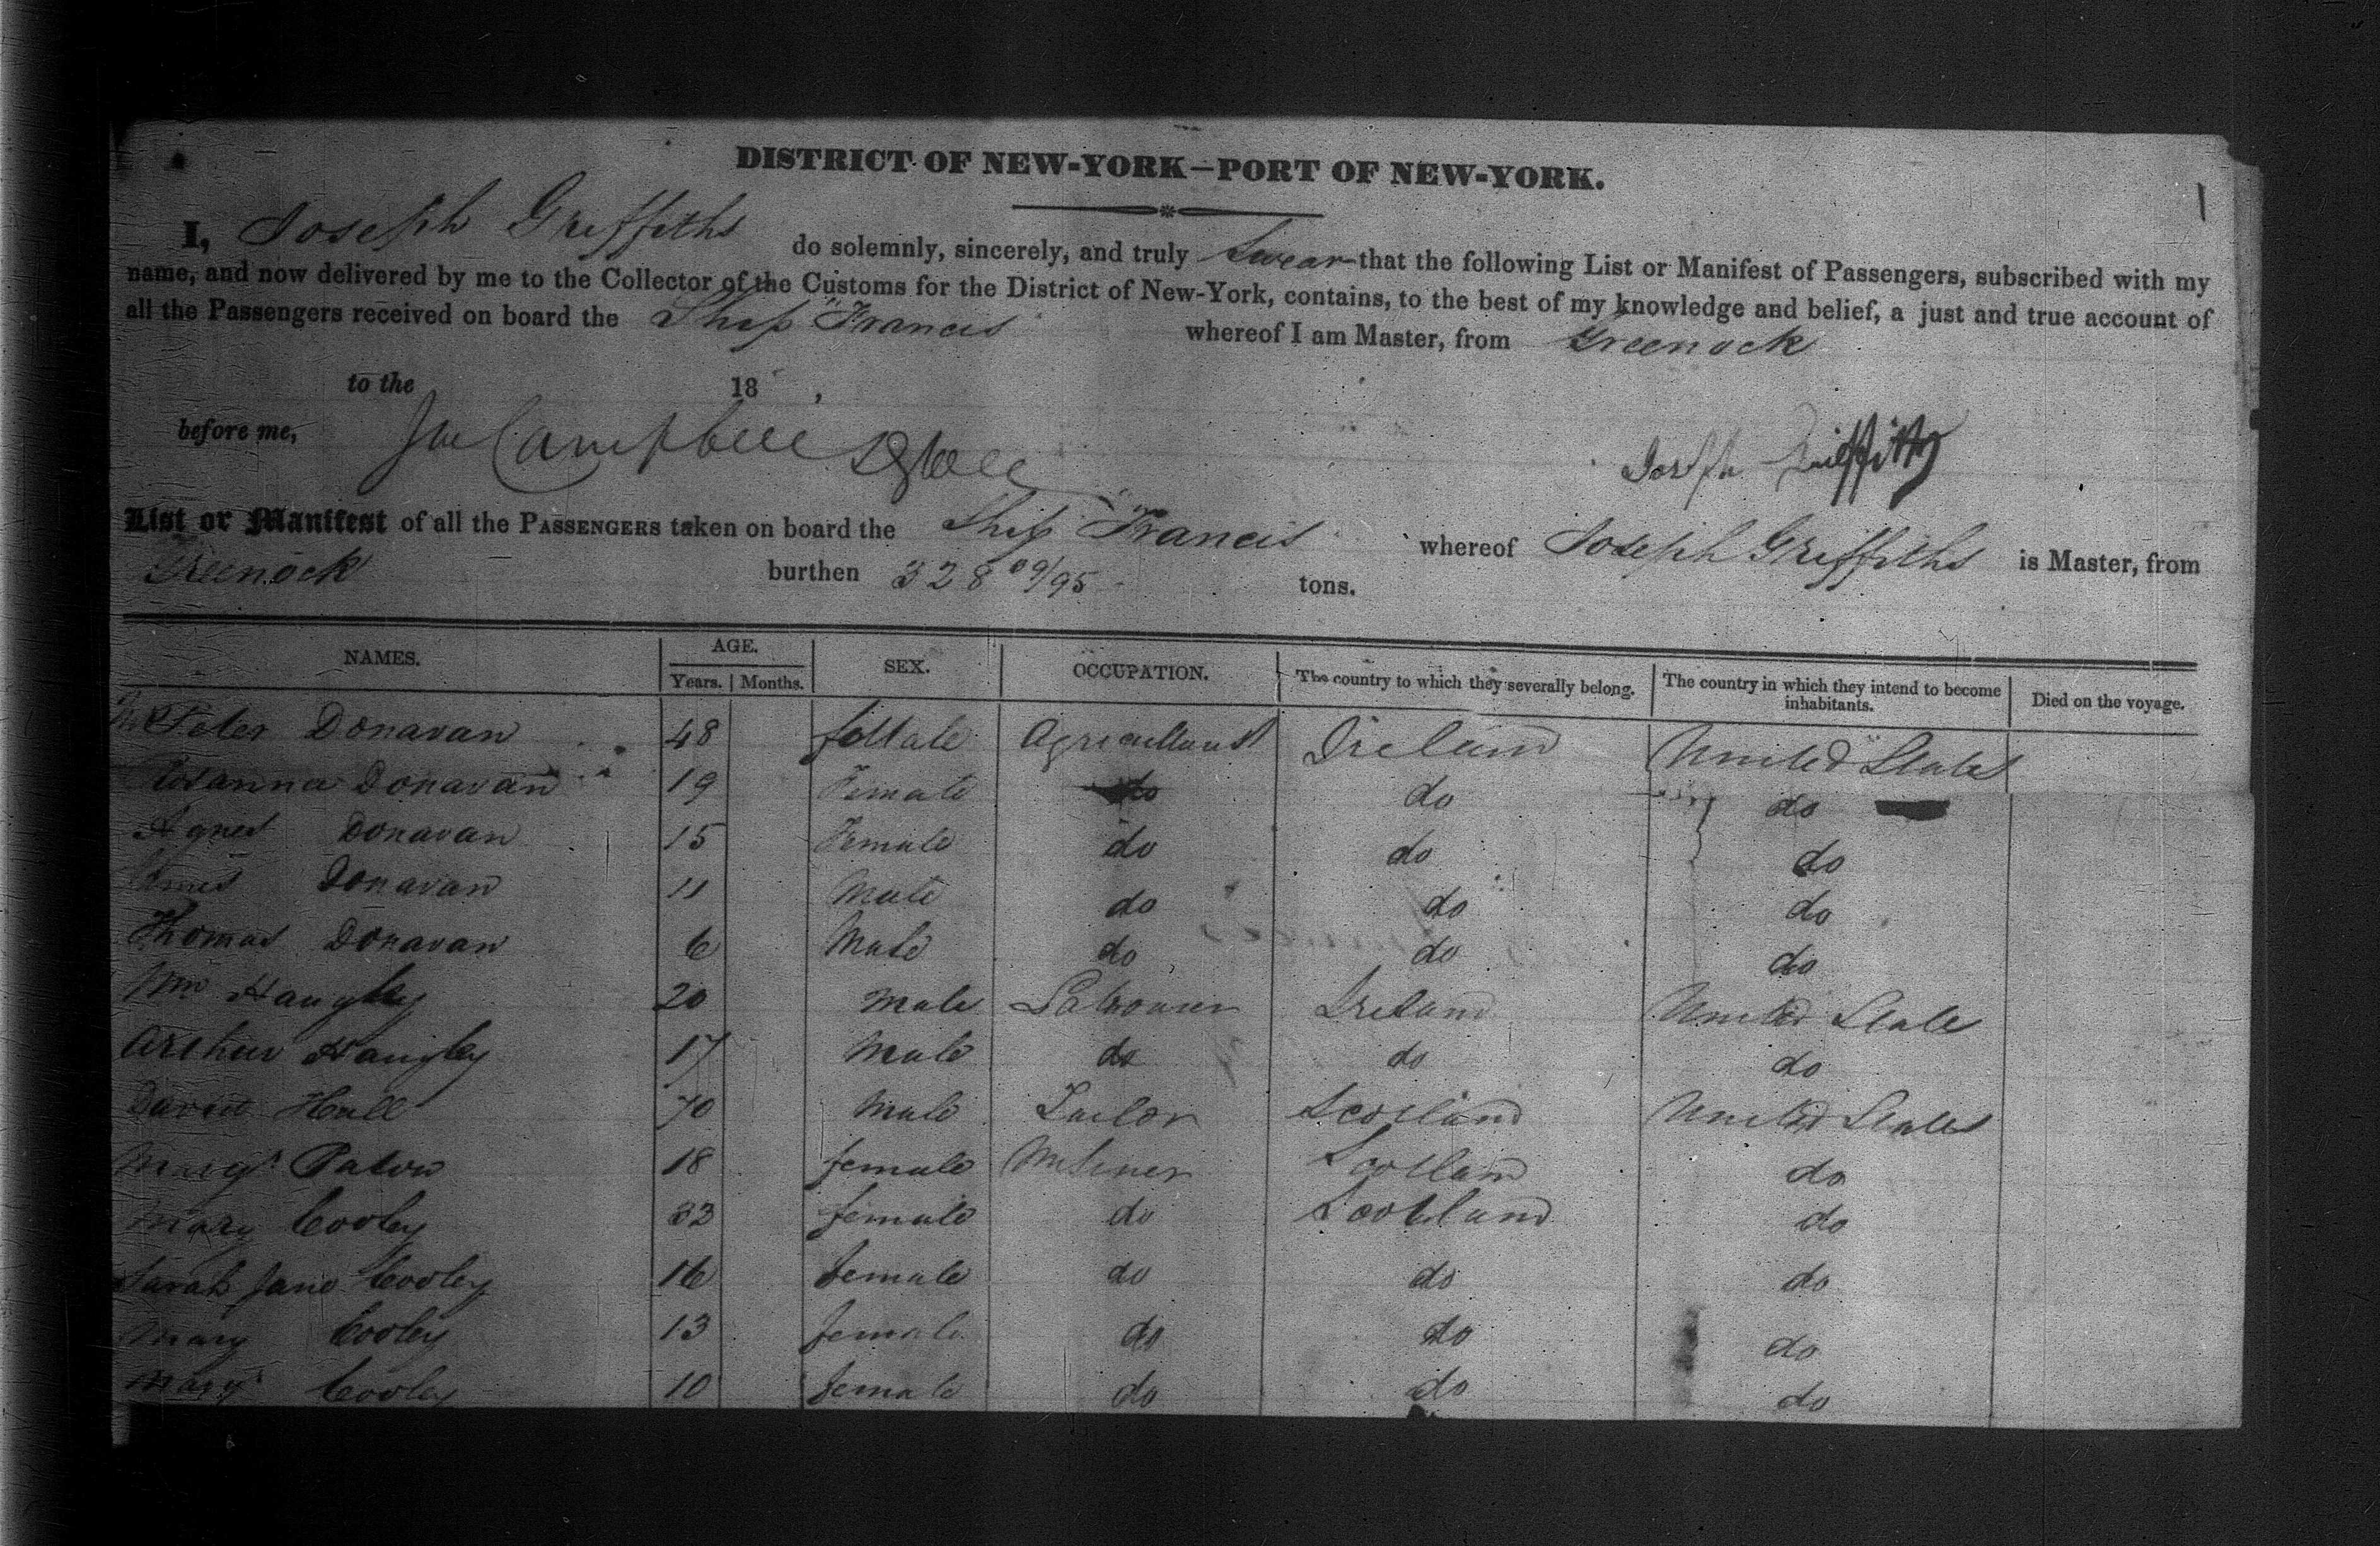 DISTRICT OF NEW-YORK—PORT OF NEW-YORK.
I, Joseph Griffiths do solemnly, sincerely, and truly Swear that the following List or Manifest of Passengers, subscribed with my
name, and now delivered by me to the Collector of the Customs for the District of New-York, contains, to the best of my knowledge and belief, a just and true account of
all the Passengers received on board the Ship "Francis whereof I am Master, from Greenock
to the 18 ,
before me, Campbell Joseph Griffiths
List or Manifest of all the PASSENGERS taken on board the Ship "Francis whereof Joseph Griffiths is Master, from
Greenock burthen 328 09/95 tons.
NAMES. AGE. Years. Months. SEX. OCCUPATION. The country to which they severally belong. The country in which they intend to become inhabitants. Died on the voyage.
Peter Donavan 48 Male Agricultural Ireland United States
Rosanna Donavan 19 Female do do do
Agnes Donavan 15 Female do do do
James Donavan 11 Male do do do
Thomas Donavan 6 Male do do do
Wm Haugley 20 Male Labourer Ireland United States
Arthur Haugley 17 Male do do do
David Hall 70 Male Tailor Scotland United States
Margt Paton 18 female Miliner Scotland do
Mary Cooley 32 female do Scotland do
Sarah Jane Cooley 16 female do do do
Mary Cooley 13 female do do do
Margt Cooley 10 female do do do